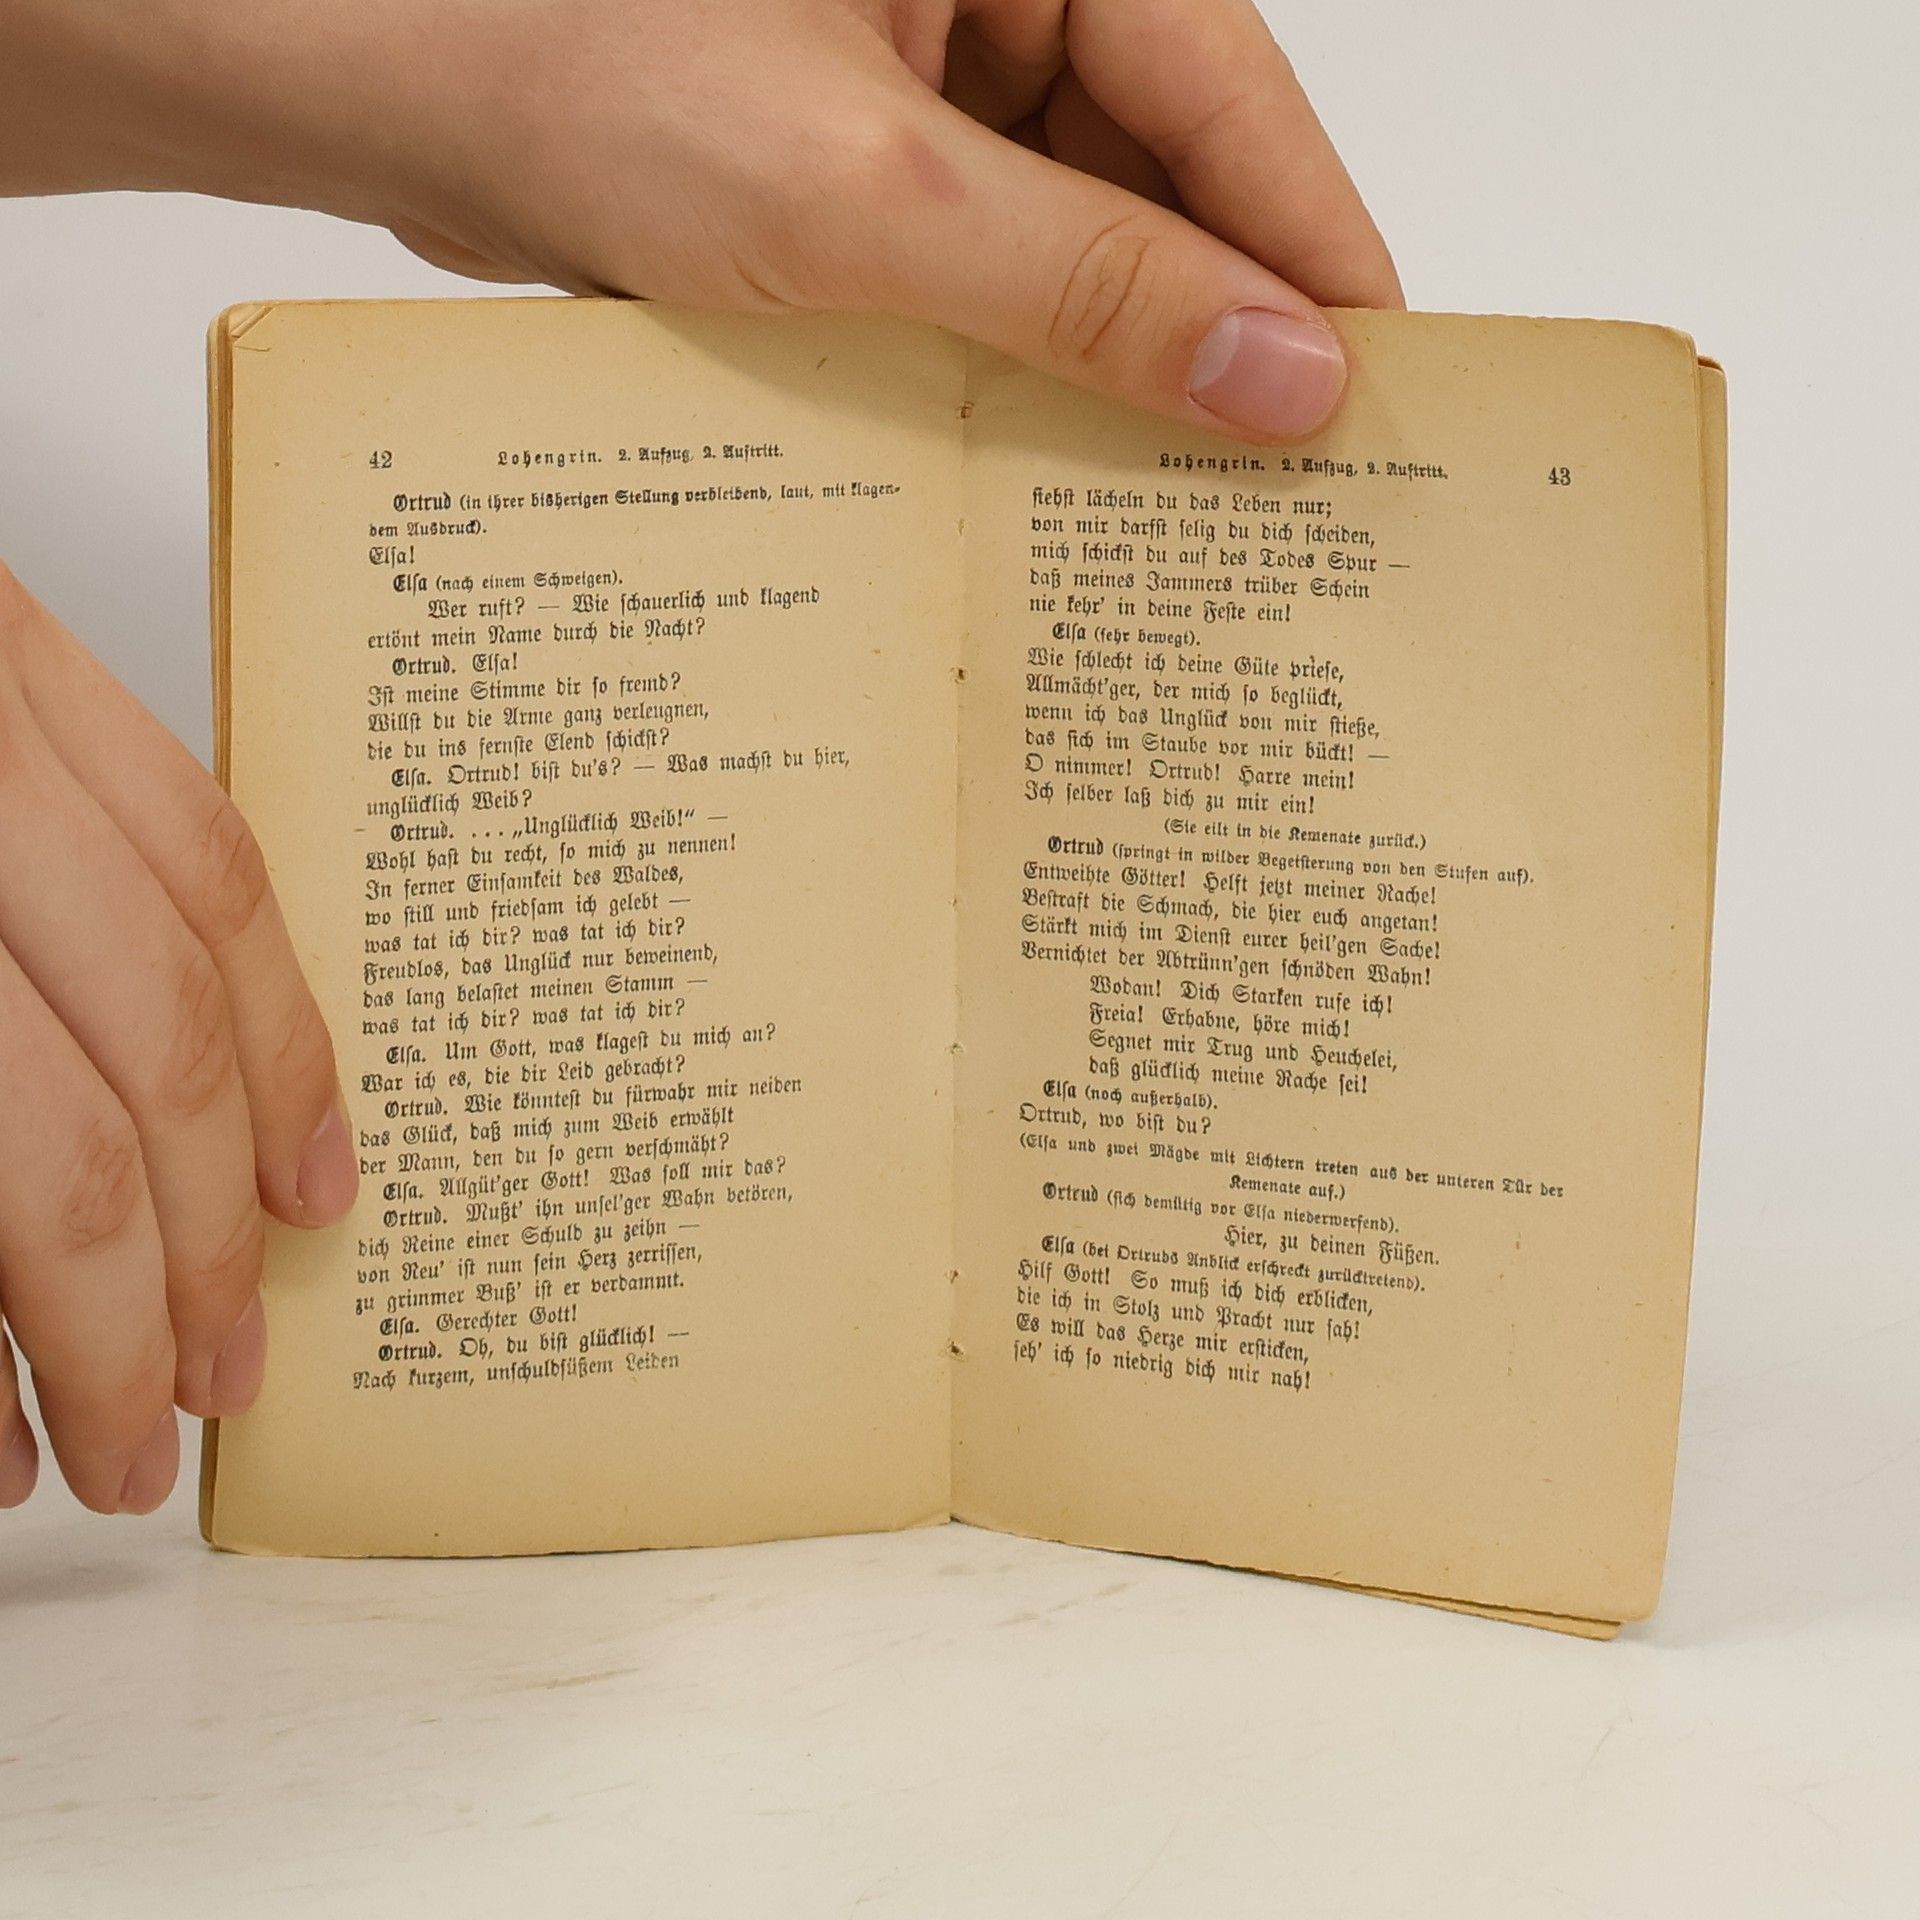 42 Lohengrin. 2. Aufzug, 2. Auftritt.
Ortrud (in ihrer bisherigen Stellung verbleibend, laut, mit klagen-
dem Ausdruck).
Elsa!
Elsa (nach einem Schweigen).
Wer ruft? — Wie schauerlich und klagend
ertönt mein Name durch die Nacht?
Ortrud. Elsa!
Ist meine Stimme dir so fremd?
Willst du die Arme ganz verleugnen,
die du ins fernste Elend schickst?
Elsa. Ortrud! bist du's? — Was machst du hier,
unglücklich Weib?
Ortrud. ... „Unglücklich Weib!“ —
Wohl hast du recht, so mich zu nennen!
In ferner Einsamkeit des Waldes,
wo still und friedsam ich gelebt —
was tat ich dir? was tat ich dir?
Freudlos, das Unglück nur beweinend,
das lang belastet meinen Stamm —
was tat ich dir? was tat ich dir?
Elsa. Um Gott, was klagest du mich an?
War ich es, die dir Leid gebracht?
Ortrud. Wie könntest du fürwahr mir neiden
das Glück, daß mich zum Weib erwählt
der Mann, den du so gern verschmäht?
Elsa. Allgüt'ger Gott! Was soll mir das?
Ortrud. Mußt' ihn unsel'ger Wahn betören,
dich Reine einer Schuld zu zeihn —
von Reu' ist nun sein Herz zerrissen,
zu grimmer Buß' ist er verdammt.
Elsa. Gerechter Gott!
Ortrud. Oh, du bist glücklich! —
Nach kurzem, unschuldsüßem Leiden
Lohengrin. 2. Aufzug, 2. Auftritt. 43
siehst lächeln du das Leben nur;
von mir darfst selig du dich scheiden,
mich schickst du auf des Todes Spur —
daß meines Jammers trüber Schein
nie kehr' in deine Feste ein!
Elsa (sehr bewegt).
Wie schlecht ich deine Güte priese,
Allmächt'ger, der mich so beglückt,
wenn ich das Unglück von mir stieße,
das sich im Staube vor mir bückt! —
O nimmer! Ortrud! Harre mein!
Ich selber laß dich zu mir ein!
(Sie eilt in die Kemenate zurück.)
Ortrud (springt in wilder Begeisterung von den Stufen auf).
Entweihte Götter! Helft jetzt meiner Rache!
Bestraft die Schmach, die hier euch angetan!
Stärkt mich im Dienst eurer heil'gen Sache!
Vernichtet der Abtrünn'gen schnöden Wahn!
Wodan! Dich Starken rufe ich!
Freia! Erhabne, höre mich!
Segnet mir Trug und Heuchelei,
daß glücklich meine Rache sei!
Elsa (noch außerhalb).
Ortrud, wo bist du?
(Elsa und zwei Mägde mit Lichtern treten aus der unteren Tür der
Kemenate auf.)
Ortrud (sich demütig vor Elsa niederwerfend).
Hier, zu deinen Füßen.
Elsa (bei Ortruds Anblick erschreckt zurücktretend).
Hilf Gott! So muß ich dich erblicken,
die ich in Stolz und Pracht nur sah!
Es will das Herze mir ersticken,
seh' ich so niedrig dich mir nah!